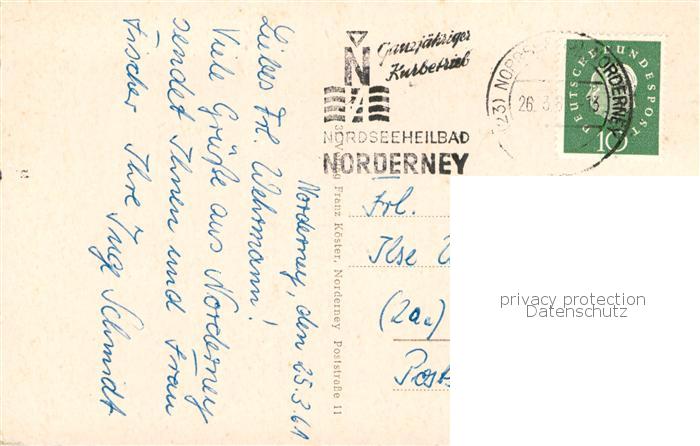 Norderney, den 25.3.61
Liebes Frl. Wehrmann!
Viele Grüße aus Norderney
sendet Ihnen und Frau
Fischer Ihre Inge Schmidt
Ganzjähriger
Kurbetrieb
N
NORDSEEHEILBAD
NORDERNEY
(23) NORDERNEY
26. 3.
DEUTSCHE BUNDESPOST
10
Verlag Franz Köster, Norderney Poststraße 11
Frl.
Ilse
(2a)
Post
privacy protection
Datenschutz